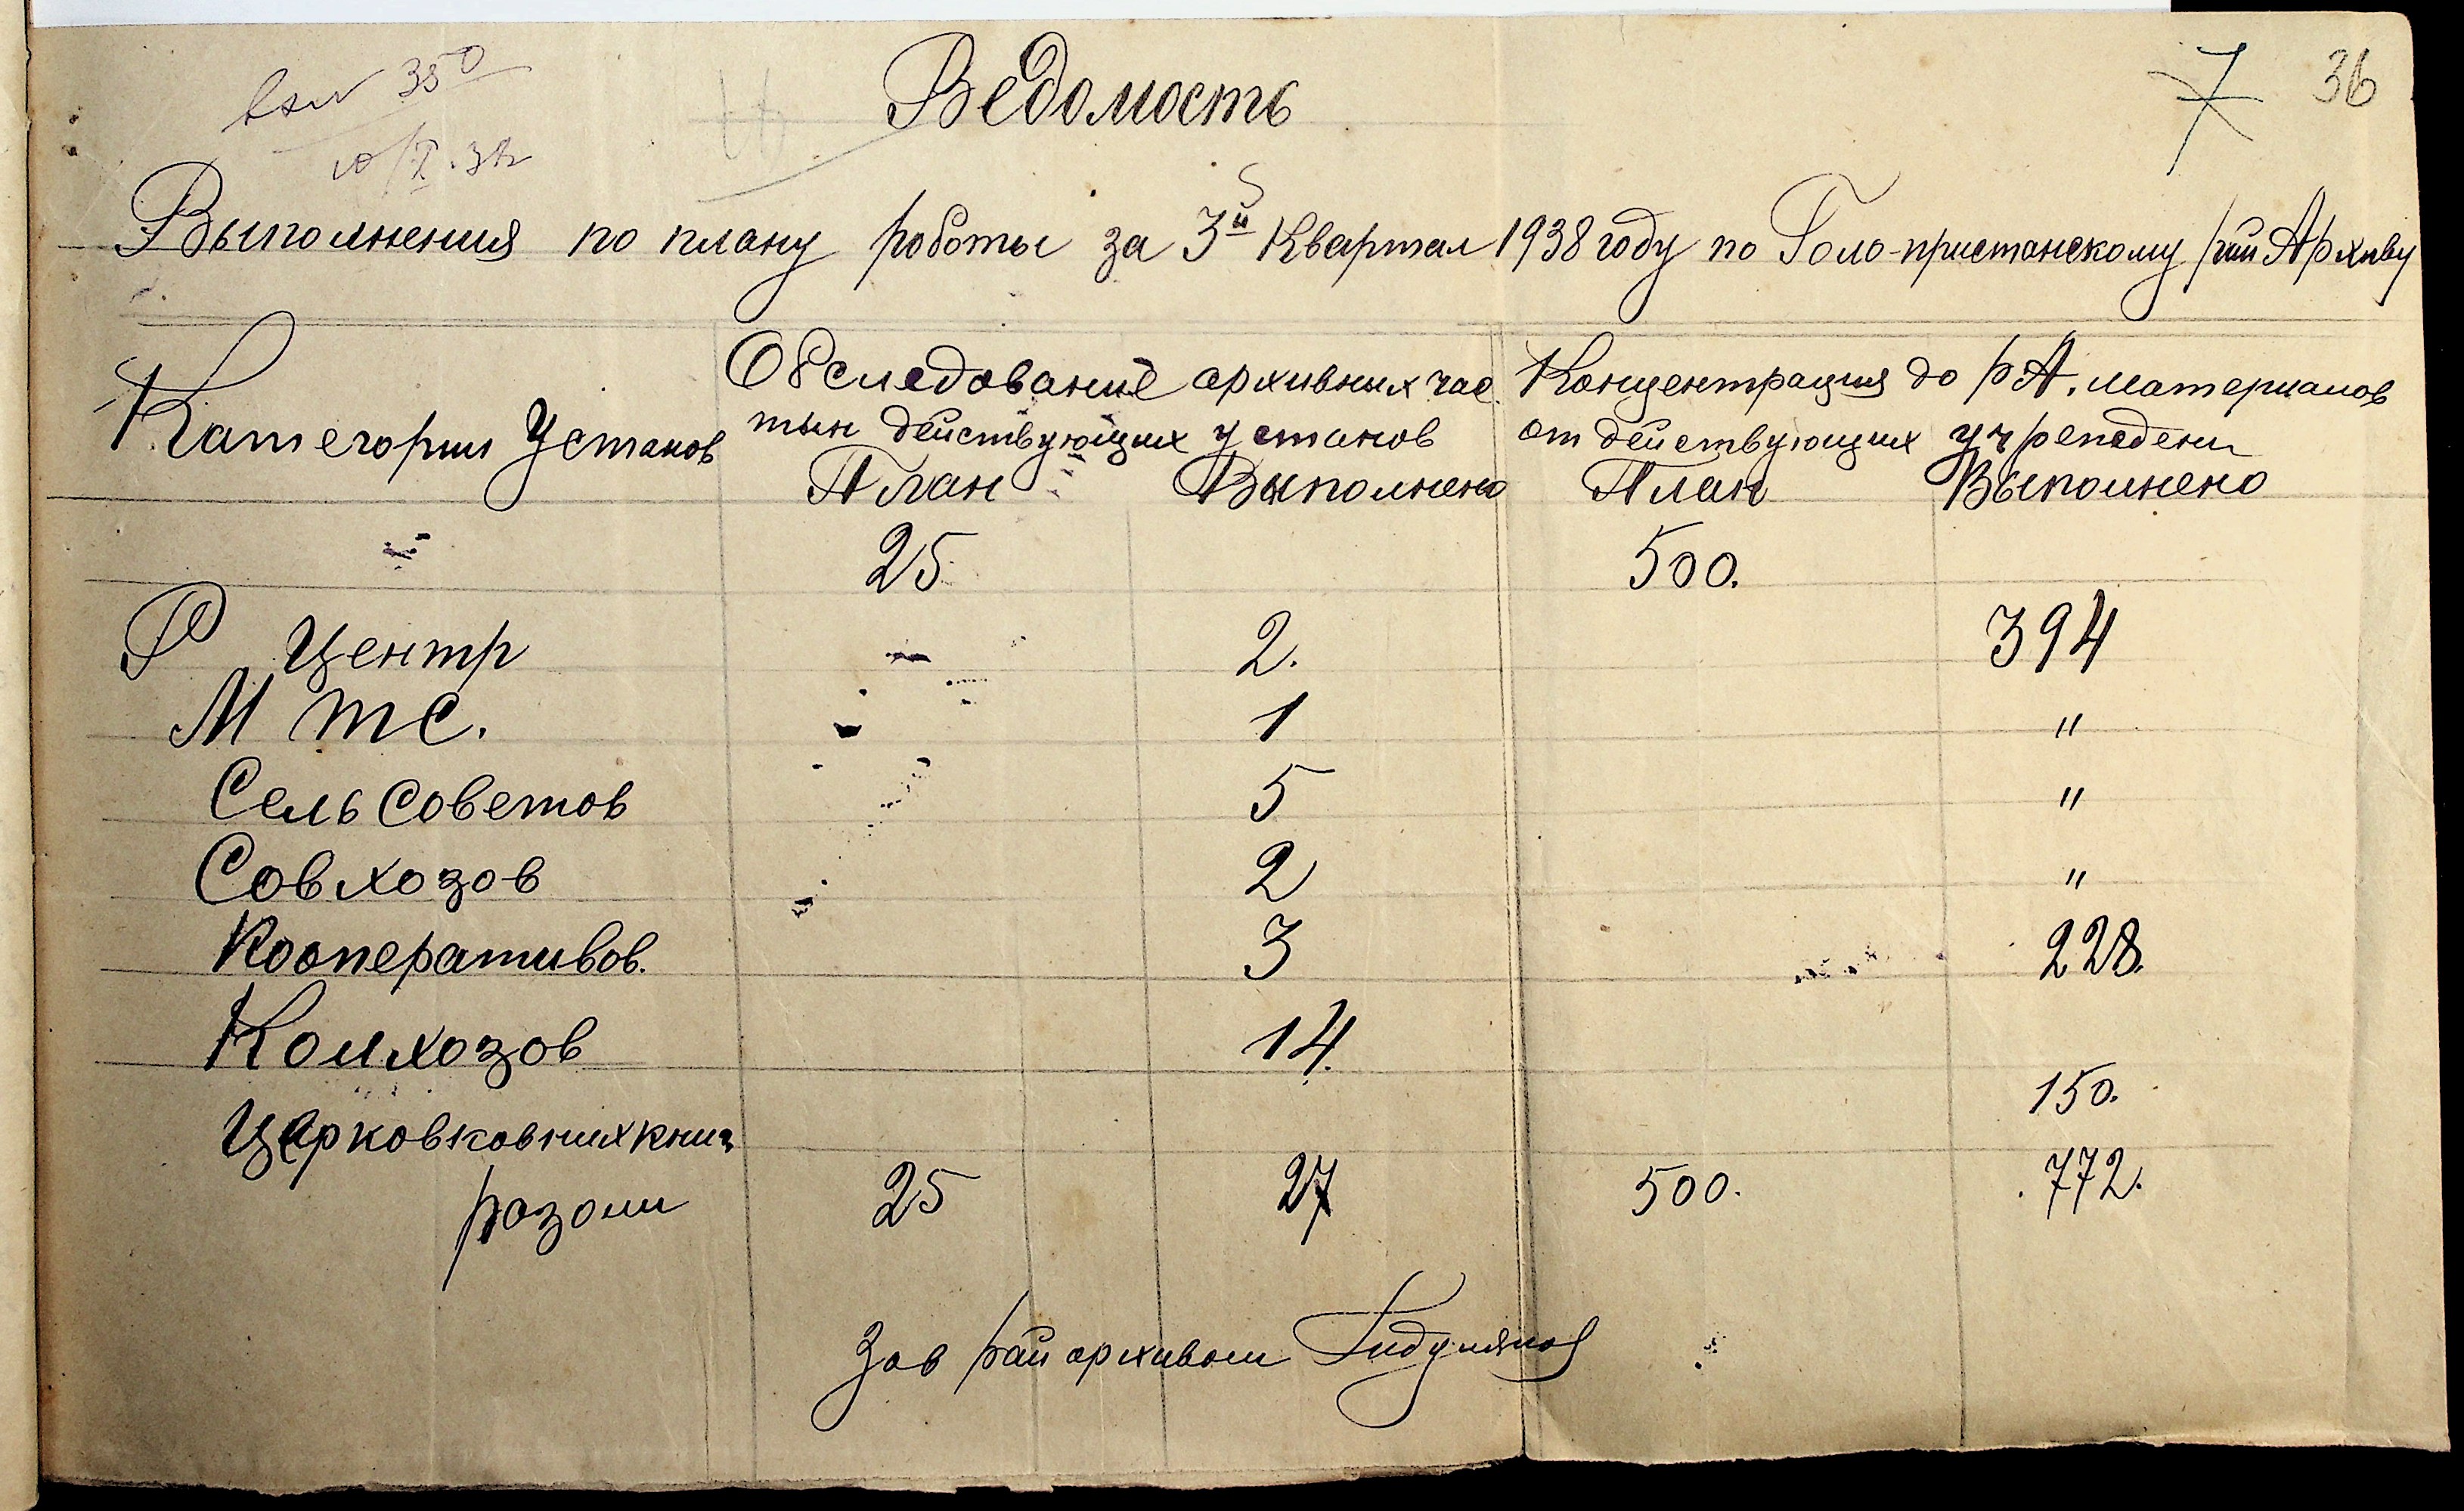 7 36
350
Ведомость
Выполнения по плану роботы за 3й Квартал 1938 году по Голо-пристанскому рай Архиву
Категории Установ
Обследование архивных час
тын действующих установ
План Выполнено
Концентрация до рА. материалов
от действующих учреждени
План Выполнено
25 500.
Р Центр 2. 394
М т С. 1 "
Сель Советов 5 "
Совхозов 2 "
Кооперативов. 3 228.
Колхозов 14.
Церковковних книг 150.
разом 25 27 500. 772.
Зав рай архивом